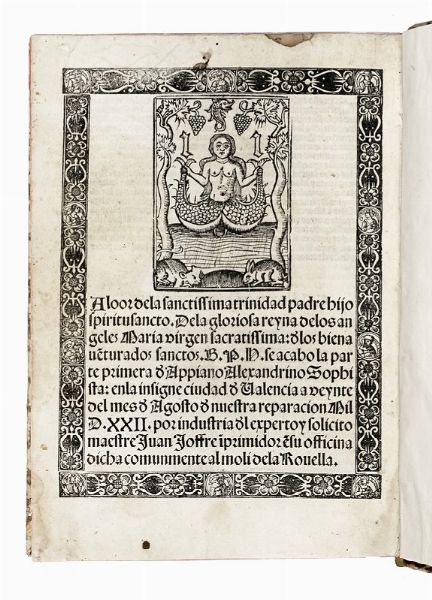 I I
A loor dela sanctissima trinidad padre hijo
spiritu sancto. Dela gloriosa reyna delos an
geles Maria virgen sacratissima: dłos biena
uẽturados sanctos. G. P. N. se acabo la par
te primera đ Appiano Alexandrino Sophis
ta: enla insigne ciudad đ Ualencia a veynte
del mes đ Agosto đ nuestra reparacion Mil
D.XXII. por industria đl experto y solicito
maestre Juan Joffre ĩprimidor ẽ su officina
dicha comunmente al moli dela Rouella.